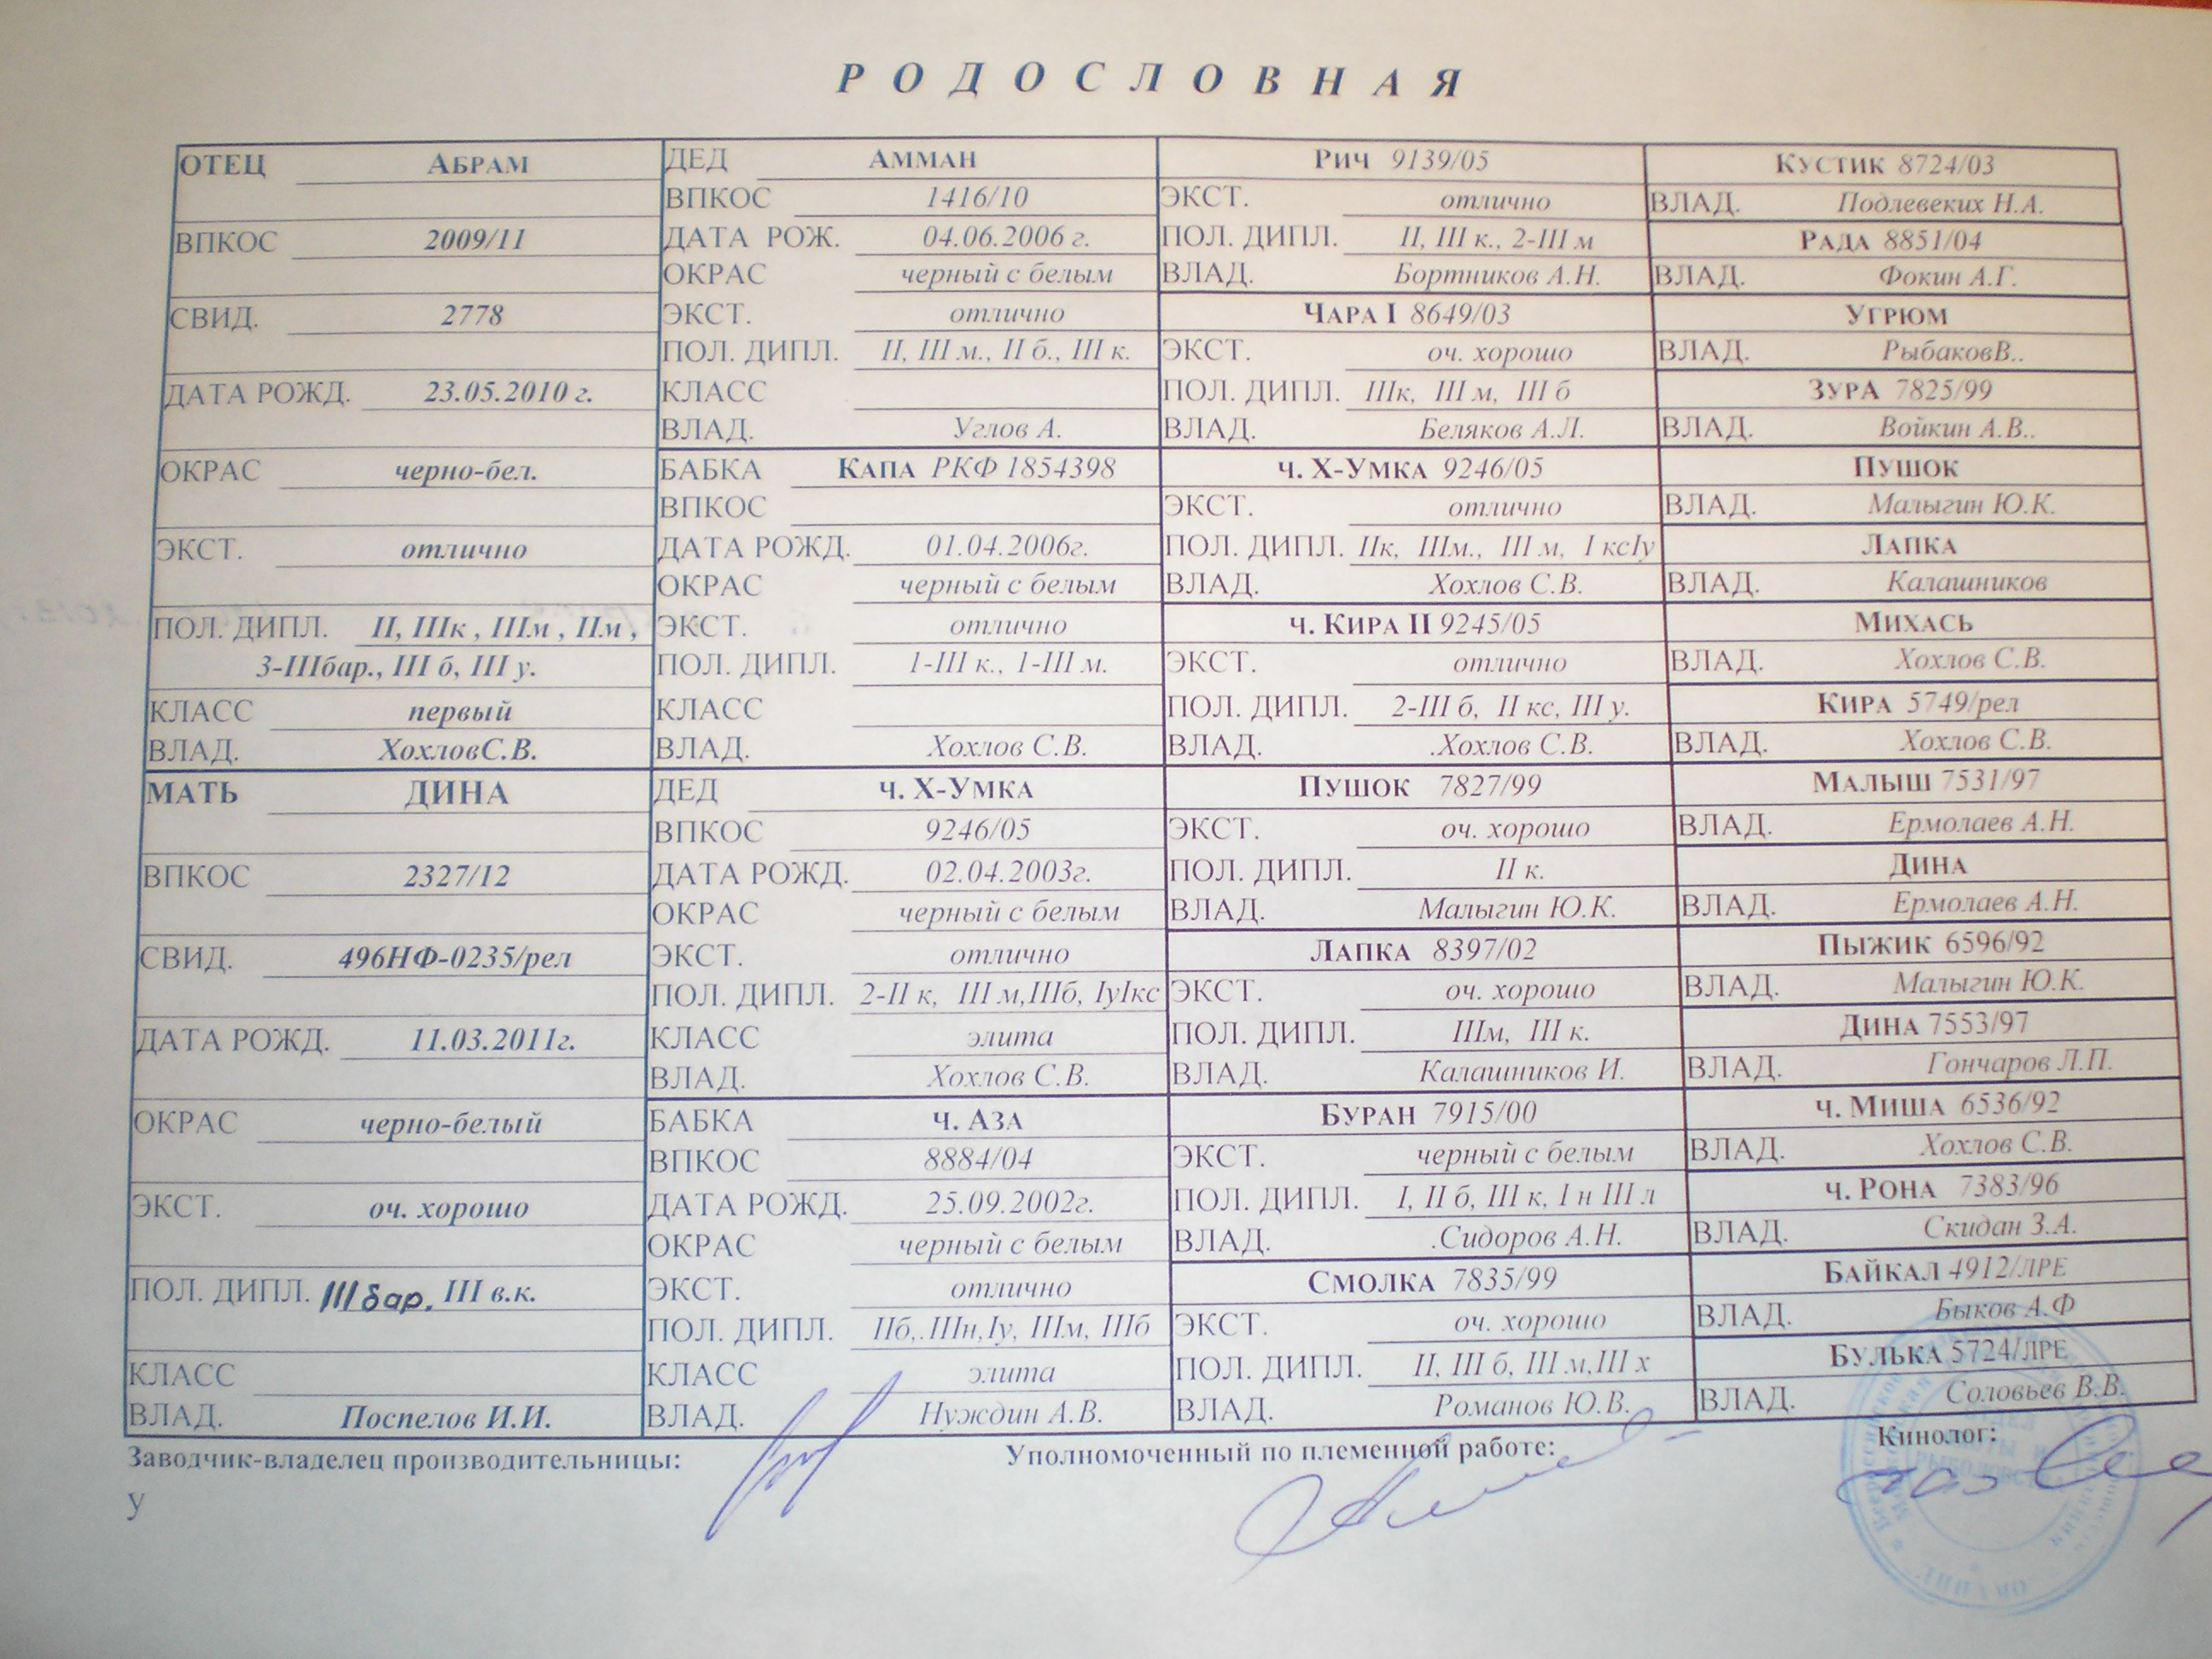 РОДОСЛОВНАЯ
ОТЕЦ АБРАМ
ВПКОС 2009/11
СВИД. 2778
ДАТА РОЖД. 23.05.2010 г.
ОКРАС черно-бел.
ЭКСТ. отлично
ПОЛ. ДИПЛ. II, IIIк , IIIм , IIм ,
3-IIIбар., III б, III у.
КЛАСС первый
ВЛАД. ХохловС.В.
ДЕД АММАН
ВПКОС 1416/10
ДАТА РОЖ. 04.06.2006 г.
ОКРАС черный с белым
ЭКСТ. отлично
ПОЛ. ДИПЛ. II, III м., II б., III к.
КЛАСС
ВЛАД. Углов А.
БАБКА КАПА РКФ 1854398
ВПКОС
ДАТА РОЖД. 01.04.2006г.
ОКРАС черный с белым
ЭКСТ. отлично
ПОЛ. ДИПЛ. 1-III к., 1-III м.
КЛАСС
ВЛАД. Хохлов С.В.
РИЧ 9139/05
ЭКСТ. отлично
ПОЛ. ДИПЛ. II, III к., 2-III м
ВЛАД. Бортников А.Н.
ЧАРА I 8649/03
ЭКСТ. оч. хорошо
ПОЛ. ДИПЛ. IIIк, III м, III б
ВЛАД. Беляков А.Л.
Ч. Х-УМКА 9246/05
ЭКСТ. отлично
ПОЛ. ДИПЛ. IIк, IIIм., III м, I ксIу
ВЛАД. Хохлов С.В.
Ч. КИРА II 9245/05
ЭКСТ. отлично
ПОЛ. ДИПЛ. 2-III б, II кс, III у.
ВЛАД. .Хохлов С.В.
КУСТИК 8724/03
ВЛАД. Подлевеких Н.А.
РАДА 8851/04
ВЛАД. Фокин А.Г.
УГРЮМ
ВЛАД. РыбаковВ..
ЗУРА 7825/99
ВЛАД. Войкин А.В..
ПУШОК
ВЛАД. Малыгин Ю.К.
ЛАПКА
ВЛАД. Калашников
МИХАСЬ
ВЛАД. Хохлов С.В.
КИРА 5749/рел
ВЛАД. Хохлов С.В.
МАТЬ ДИНА
ВПКОС 2327/12
СВИД. 496НФ-0235/рел
ДАТА РОЖД. 11.03.2011г.
ОКРАС черно-белый
ЭКСТ. оч. хорошо
ПОЛ. ДИПЛ. III бар. III в.к.
КЛАСС
ВЛАД. Поспелов И.И.
ДЕД Ч. Х-УМКА
ВПКОС 9246/05
ДАТА РОЖД. 02.04.2003г.
ОКРАС черный с белым
ЭКСТ. отлично
ПОЛ. ДИПЛ. 2-II к, III м,IIIб, IуIкс
КЛАСС элита
ВЛАД. Хохлов С.В.
БАБКА Ч. АЗА
ВПКОС 8884/04
ДАТА РОЖД. 25.09.2002г.
ОКРАС черный с белым
ЭКСТ. отлично
ПОЛ. ДИПЛ. IIб,.IIIн,Iу, IIIм, IIIб
КЛАСС элита
ВЛАД. Нуждин А.В.
ПУШОК 7827/99
ЭКСТ. оч. хорошо
ПОЛ. ДИПЛ. II к.
ВЛАД. Малыгин Ю.К.
ЛАПКА 8397/02
ЭКСТ. оч. хорошо
ПОЛ. ДИПЛ. IIIм, III к.
ВЛАД. Калашников И.
БУРАН 7915/00
ЭКСТ. черный с белым
ПОЛ. ДИПЛ. I, II б, III к, I н III л
ВЛАД. .Сидоров А.Н.
СМОЛКА 7835/99
ЭКСТ. оч. хорошо
ПОЛ. ДИПЛ. II, III б, III м,III х
ВЛАД. Романов Ю.В.
МАЛЫШ 7531/97
ВЛАД. Ермолаев А.Н.
ДИНА
ВЛАД. Ермолаев А.Н.
ПЫЖИК 6596/92
ВЛАД. Малыгин Ю.К.
ДИНА 7553/97
ВЛАД. Гончаров Л.П.
Ч. МИША 6536/92
ВЛАД. Хохлов С.В.
Ч. РОНА 7383/96
ВЛАД. Скидан З.А.
БАЙКАЛ 4912/ЛРЕ
ВЛАД. Быков А.Ф
БУЛЬКА 5724/ЛРЕ
ВЛАД. Соловьев В.В.
Заводчик-владелец производительницы:
Уполномоченный по племенной работе:
Кинолог:
У